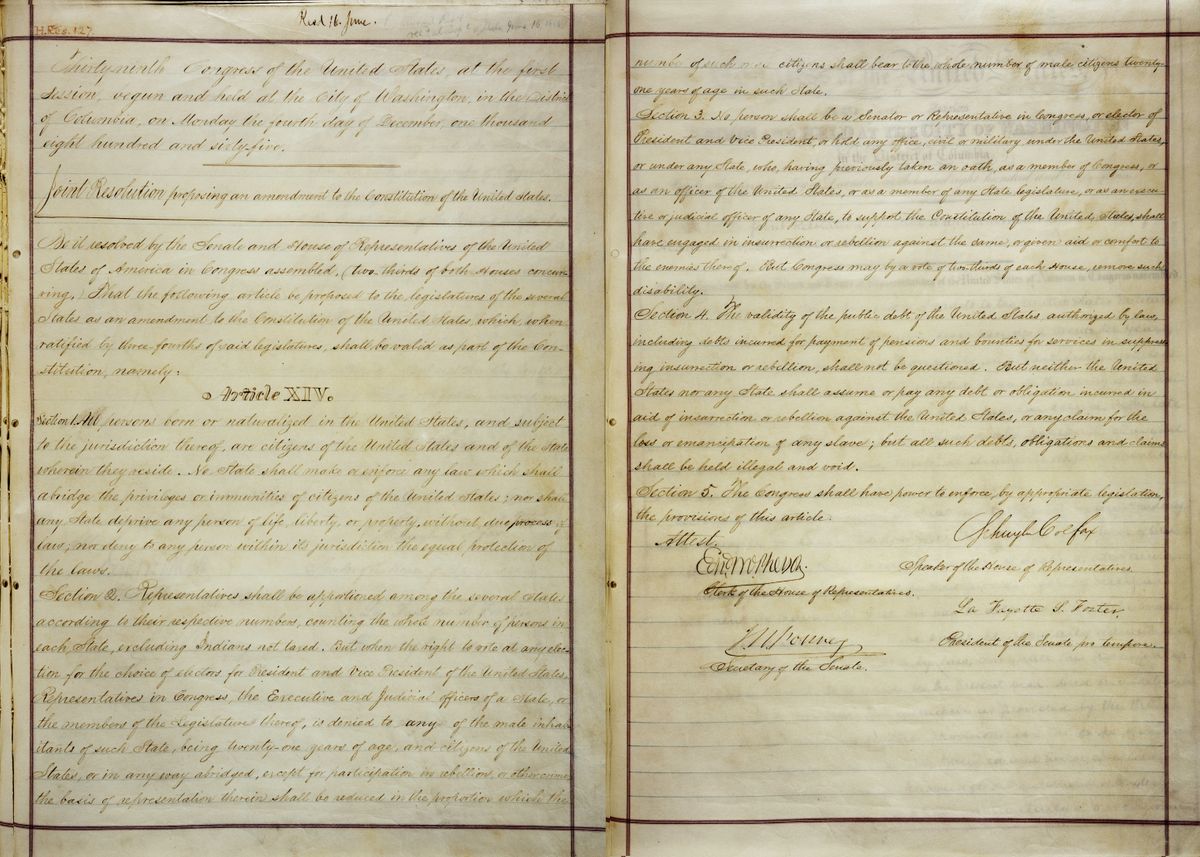 H.Res. 127
Recd 16. June.
Thirty-ninth Congress of the United States, at the first
Session, begun and held at the City of Washington, in the District
of Columbia, on Monday the fourth day of December, one thousand
eight hundred and sixty-five.
Joint Resolution proposing an amendment to the Constitution of the United States.
Be it resolved by the Senate and House of Representatives of the United
States of America in Congress assembled, (two-thirds of both Houses concur-
ring,) That the following article be proposed to the legislatures of the several
States as an amendment to the Constitution of the United States, which, when
ratified by three-fourths of said legislatures, shall be valid as part of the Con-
stitution, namely:
Article XIV.
Section 1. All persons born or naturalized in the United States, and subject
to the jurisdiction thereof, are citizens of the United States and of the State
wherein they reside. No State shall make or enforce any law which shall
abridge the privileges or immunities of citizens of the United States; nor shall
any State deprive any person of life, liberty, or property, without due process of
law; nor deny to any person within its jurisdiction the equal protection of
the laws.
Section 2. Representatives shall be apportioned among the several States
according to their respective numbers, counting the whole number of persons in
each State, excluding Indians not taxed. But when the right to vote at any elec-
tion for the choice of electors for President and Vice President of the United States,
Representatives in Congress, the Executive and Judicial officers of a State, or
the members of the Legislature thereof, is denied to any of the male inhab-
itants of such State, being twenty-one years of age, and citizens of the United
States, or in any way abridged, except for participation in rebellion, or other crime,
the basis of representation therein shall be reduced in the proportion which the
number of such male citizens shall bear to the whole number of male citizens twenty-
one years of age in such State.
Section 3. No person shall be a Senator or Representative in Congress, or elector of
President and Vice President, or hold any office, civil or military under the United States,
or under any State, who, having previously taken an oath, as a member of Congress, or
as an officer of the United States, or as a member of any State legislature, or as an execu-
tive or judicial officer of any State, to support the Constitution of the United States, shall
have engaged in insurrection or rebellion against the same, or given aid or comfort to
the enemies thereof. But Congress may by a vote of two-thirds of each House, remove such
disability.
Section 4. The validity of the public debt of the United States authorized by law,
including debts incurred for payment of pensions and bounties for services in suppress-
ing insurrection or rebellion, shall not be questioned. But neither the United
States nor any State shall assume or pay any debt or obligation incurred in
aid of insurrection or rebellion against the United States, or any claim for the
loss or emancipation of any slave; but all such debts, obligations and claims
shall be held illegal and void.
Section 5. The Congress shall have power to enforce, by appropriate legislation,
the provisions of this article.
Attest.
Schuyler Colfax
Edwd McPherson
Speaker of the House of Representatives.
Clerk of the House of Representatives.
La Fayette S. Foster
J W Forney
President of the Senate pro tempore.
Secretary of the Senate.